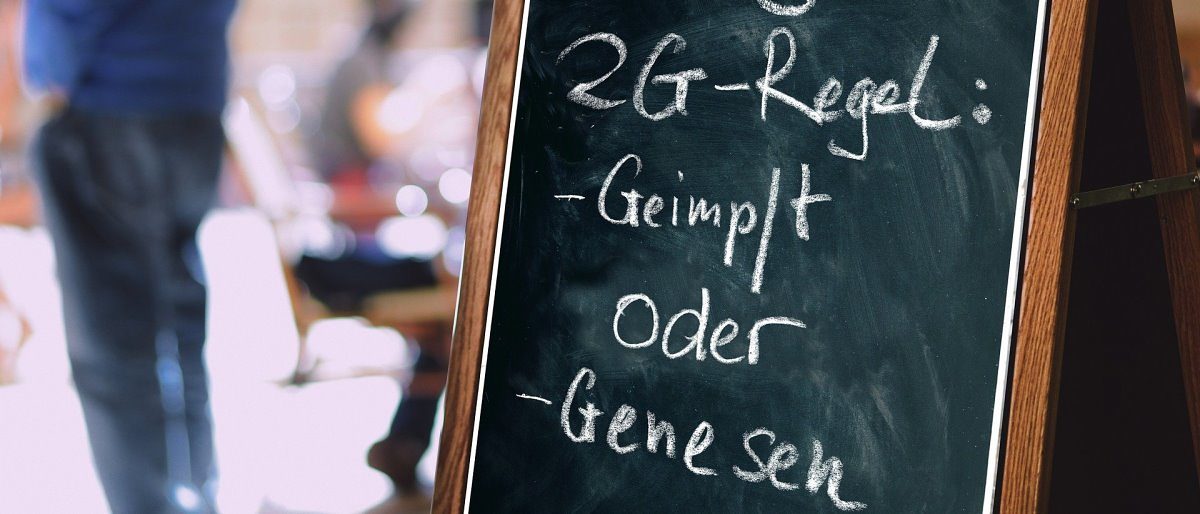 2G-Regel:
- Geimpft
oder
- Genesen